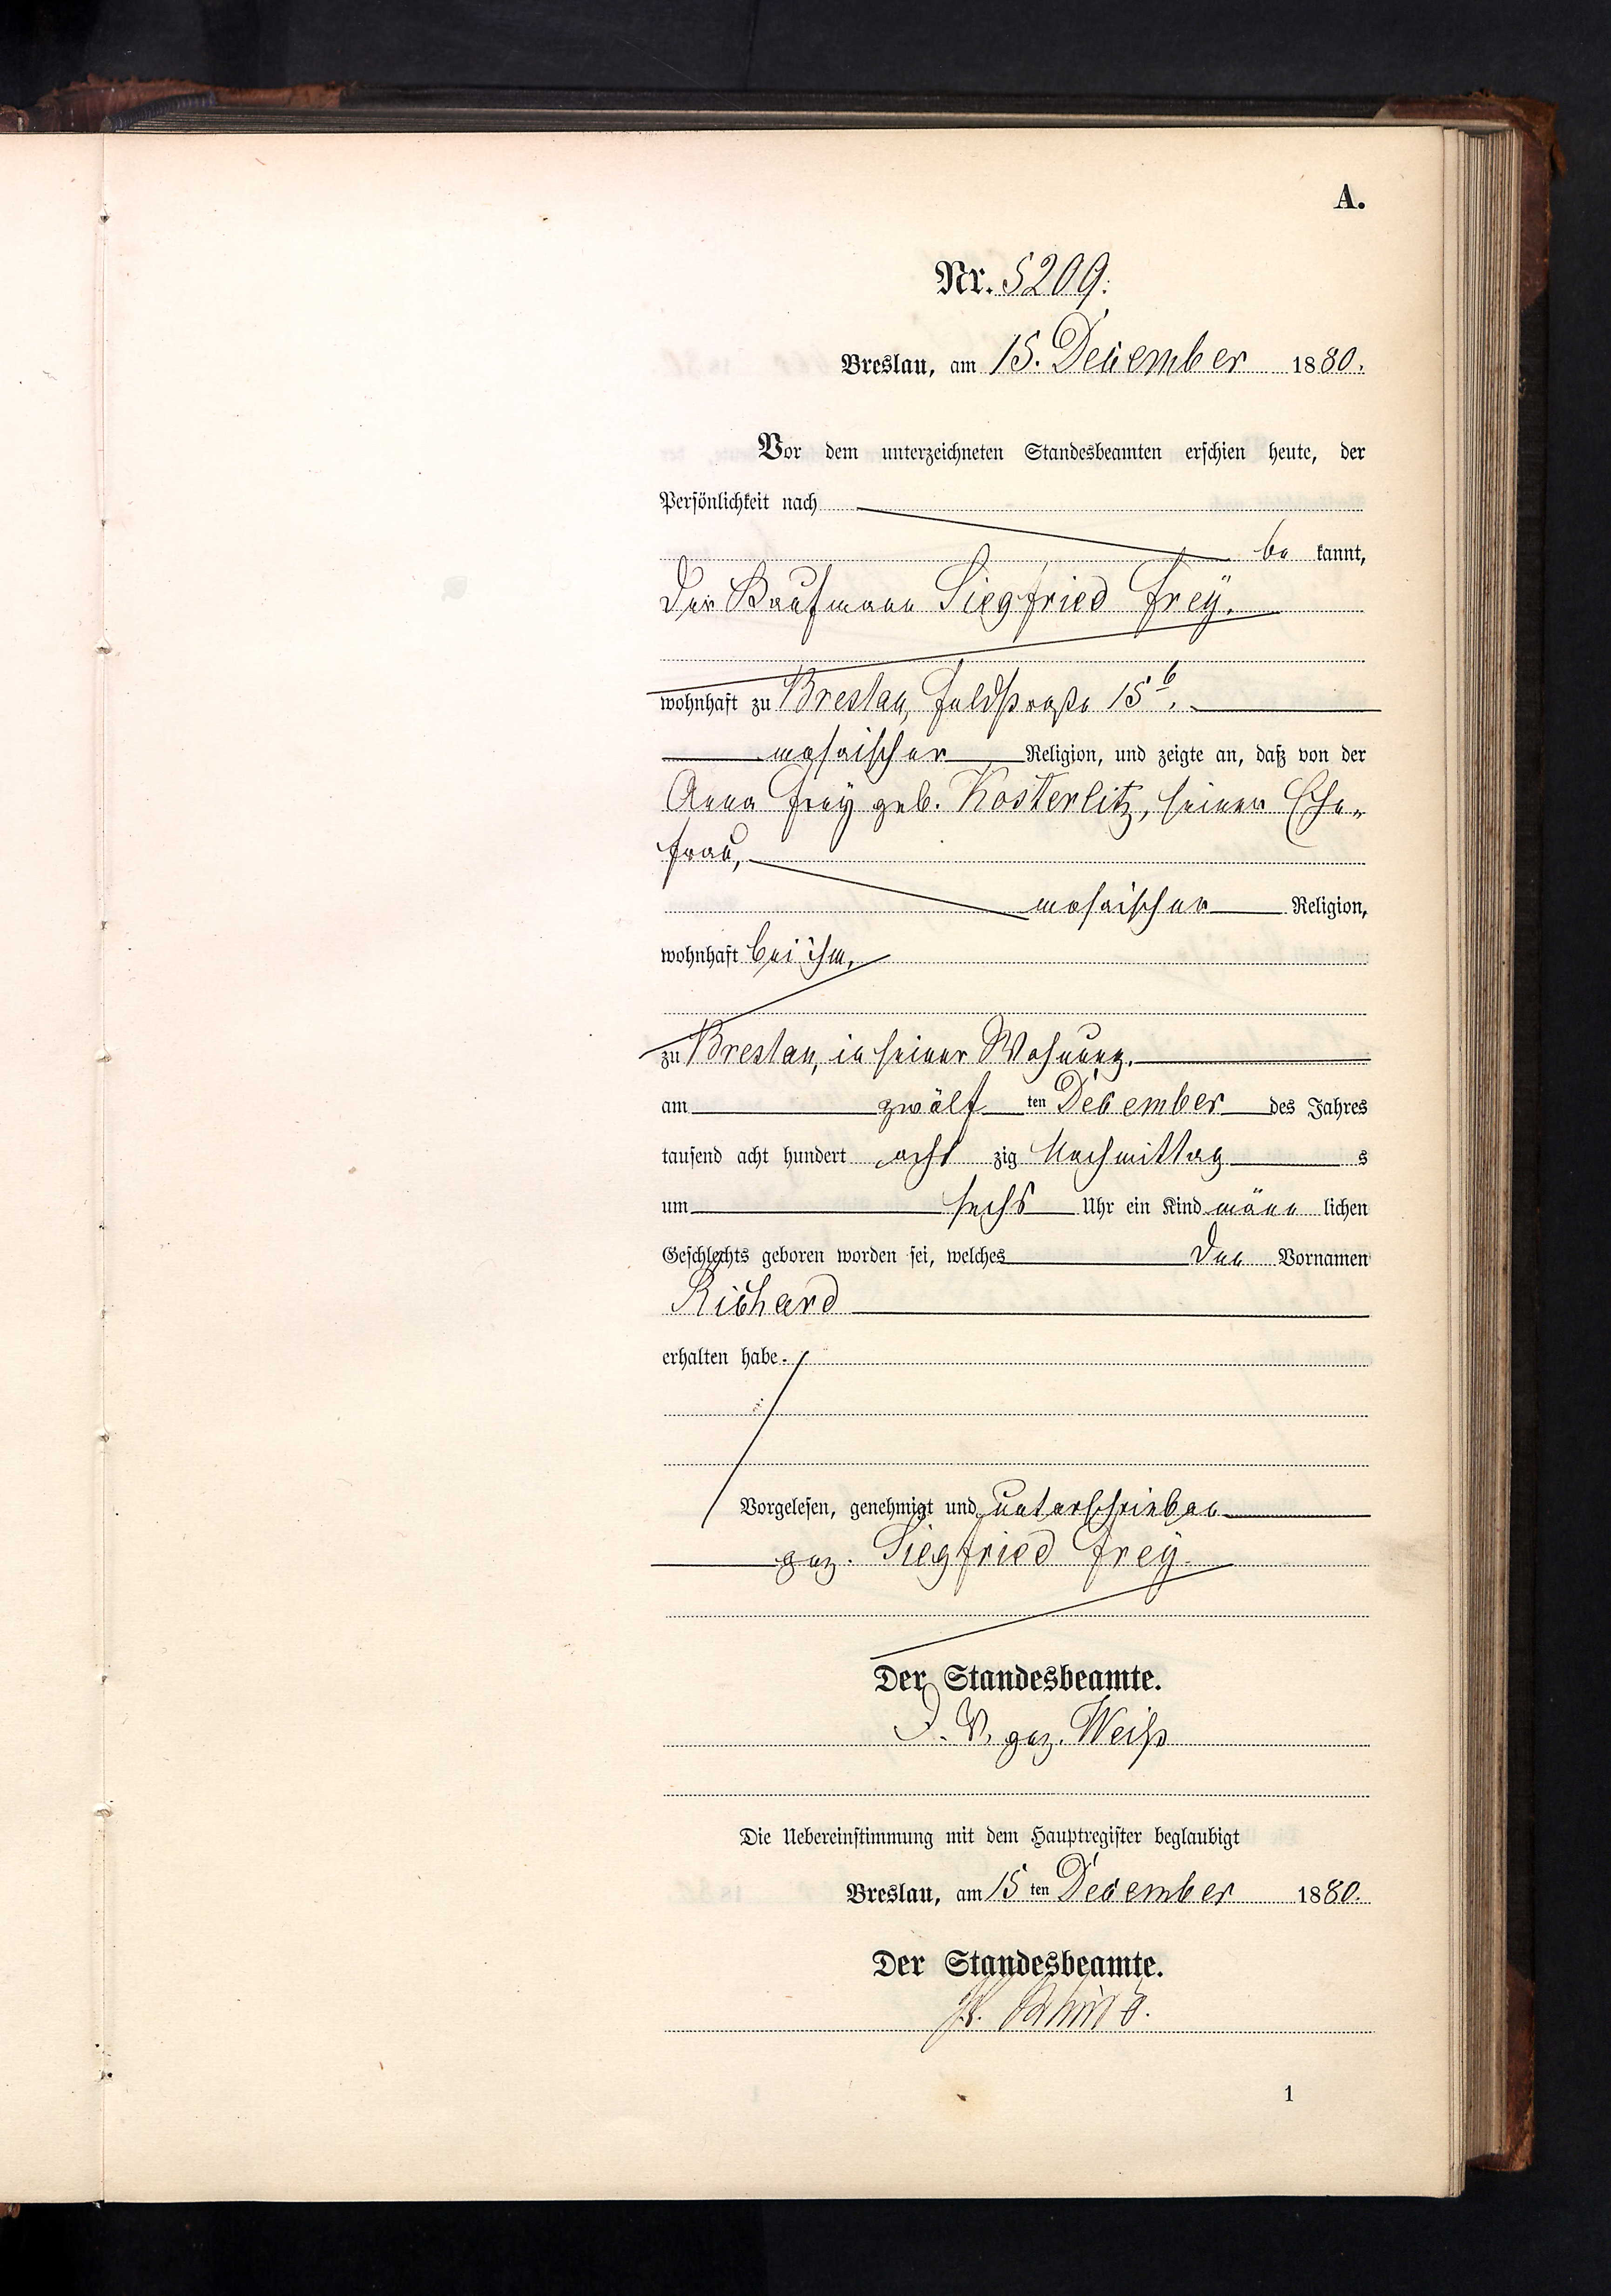 A.
Nr. 5209.
Breslau, am 15. December 1880.
Vor dem unterzeichneten Standesbeamten erschien heute, der
Persönlichkeit nach
be kannt,
der Kaufmann Siegfried Frey.
wohnhaft zu Breslau, Feldstraße 15b.
mosaischer Religion, und zeigte an, daß von der
Anna Frey geb. Kosterlitz, seiner Ehe-
frau,
mosaischer Religion,
wohnhaft bei ihm,
zu Breslau, in seiner Wohnung.
am zwölf ten December des Jahres
tausend acht hundert acht zig Nachmittag s
um sechs Uhr ein Kind männ lichen
Geschlechts geboren worden sei, welches den Vornamen
Richard
erhalten habe.
Vorgelesen, genehmigt und unterschrieben
gez. Siegfried Frey.
Der Standesbeamte.
I. V. gez. Weiß
Die Uebereinstimmung mit dem Hauptregister beglaubigt
Breslau, am 15 ten December 1880.
Der Standesbeamte.
1